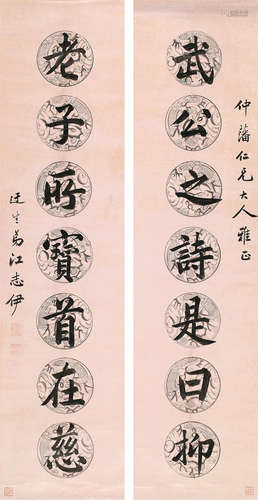 仲藩仁兄大人雅正
武公之詩是曰抑
老子所寶首在慈
江志伊